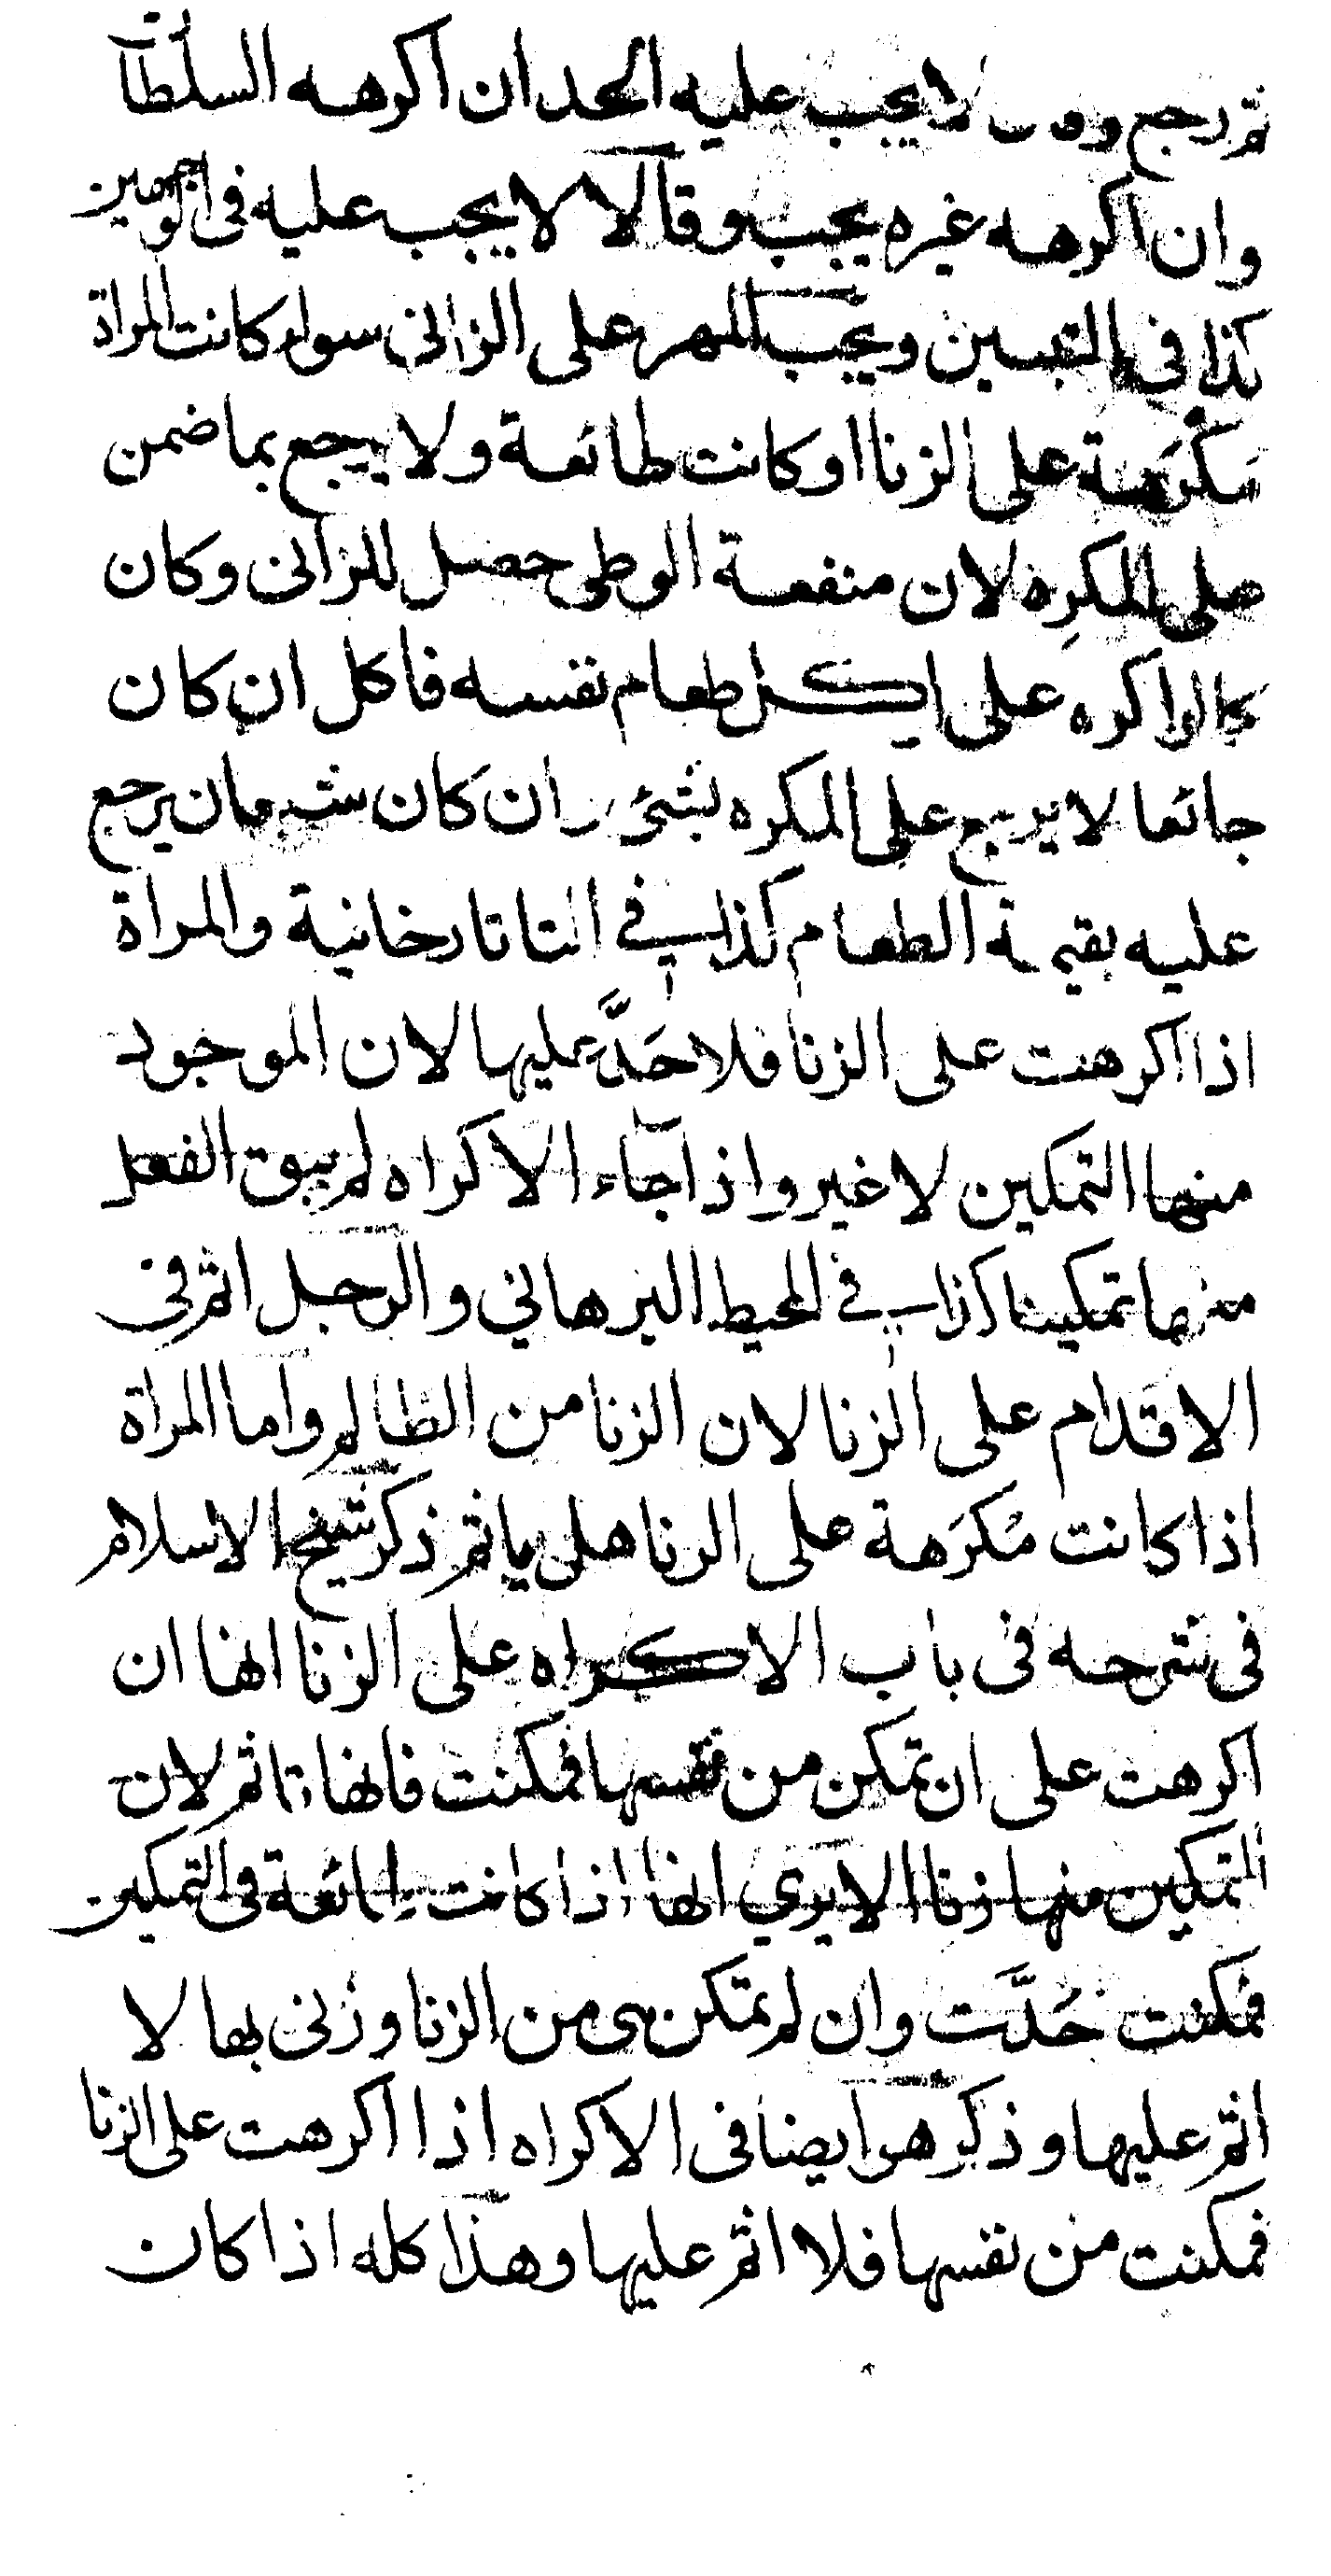 ثم رجع وقال لا يجب عليه الحد ان اكرهه السلطان
وان اكرهه غيره يجب وقالا لا يجب عليه فى الوجهين
كذا فى التبيين ويجب المهر على الزانى سواء كانت المراة
مكرَهة على الزنا او كانت طائعة ولا يرجع بما ضمن
على المكرِه لان منفعة الوطى حصل للزانى وكان
كما لو اكره على اكل طعام نفسه فاكل ان كان
جائعا لا يرجع على المكره بشئ وان كان شبعان يرجع
عليه بقيمة الطعام كذا في التاتارخانية والمراة
اذا اكرهت على الزنا فلا حَدَّ عليها لان الموجود
منها التمكين لا غير واذا جآء الاكراه لم يبق الفعل
منها تمكينا كذا في المحيط البرهاني والرجل اثم فى
الاقدام على الزنا لان الزنا من الظالم واما المراة
اذا كانت مُكرَهة على الزنا هل ياثم ذكر شيخ الاسلام
فى شرحه فى باب الاكراه على الزنا انها ان
اكرهت على ان تمكن من نفسها فمكنت فانها تاثم لان
التمكين منها زنا الا يري انها اذا كانت طائعة فى التمكين
فمكنت حُدَّت وان لم تمكن هى من الزنا وزنى بها لا
اثم عليها وذكر هو ايضا فى الاكراه اذا اكرهت على الزنا
فمكنت من نفسها فلا اثم عليها وهذا كله اذا كان